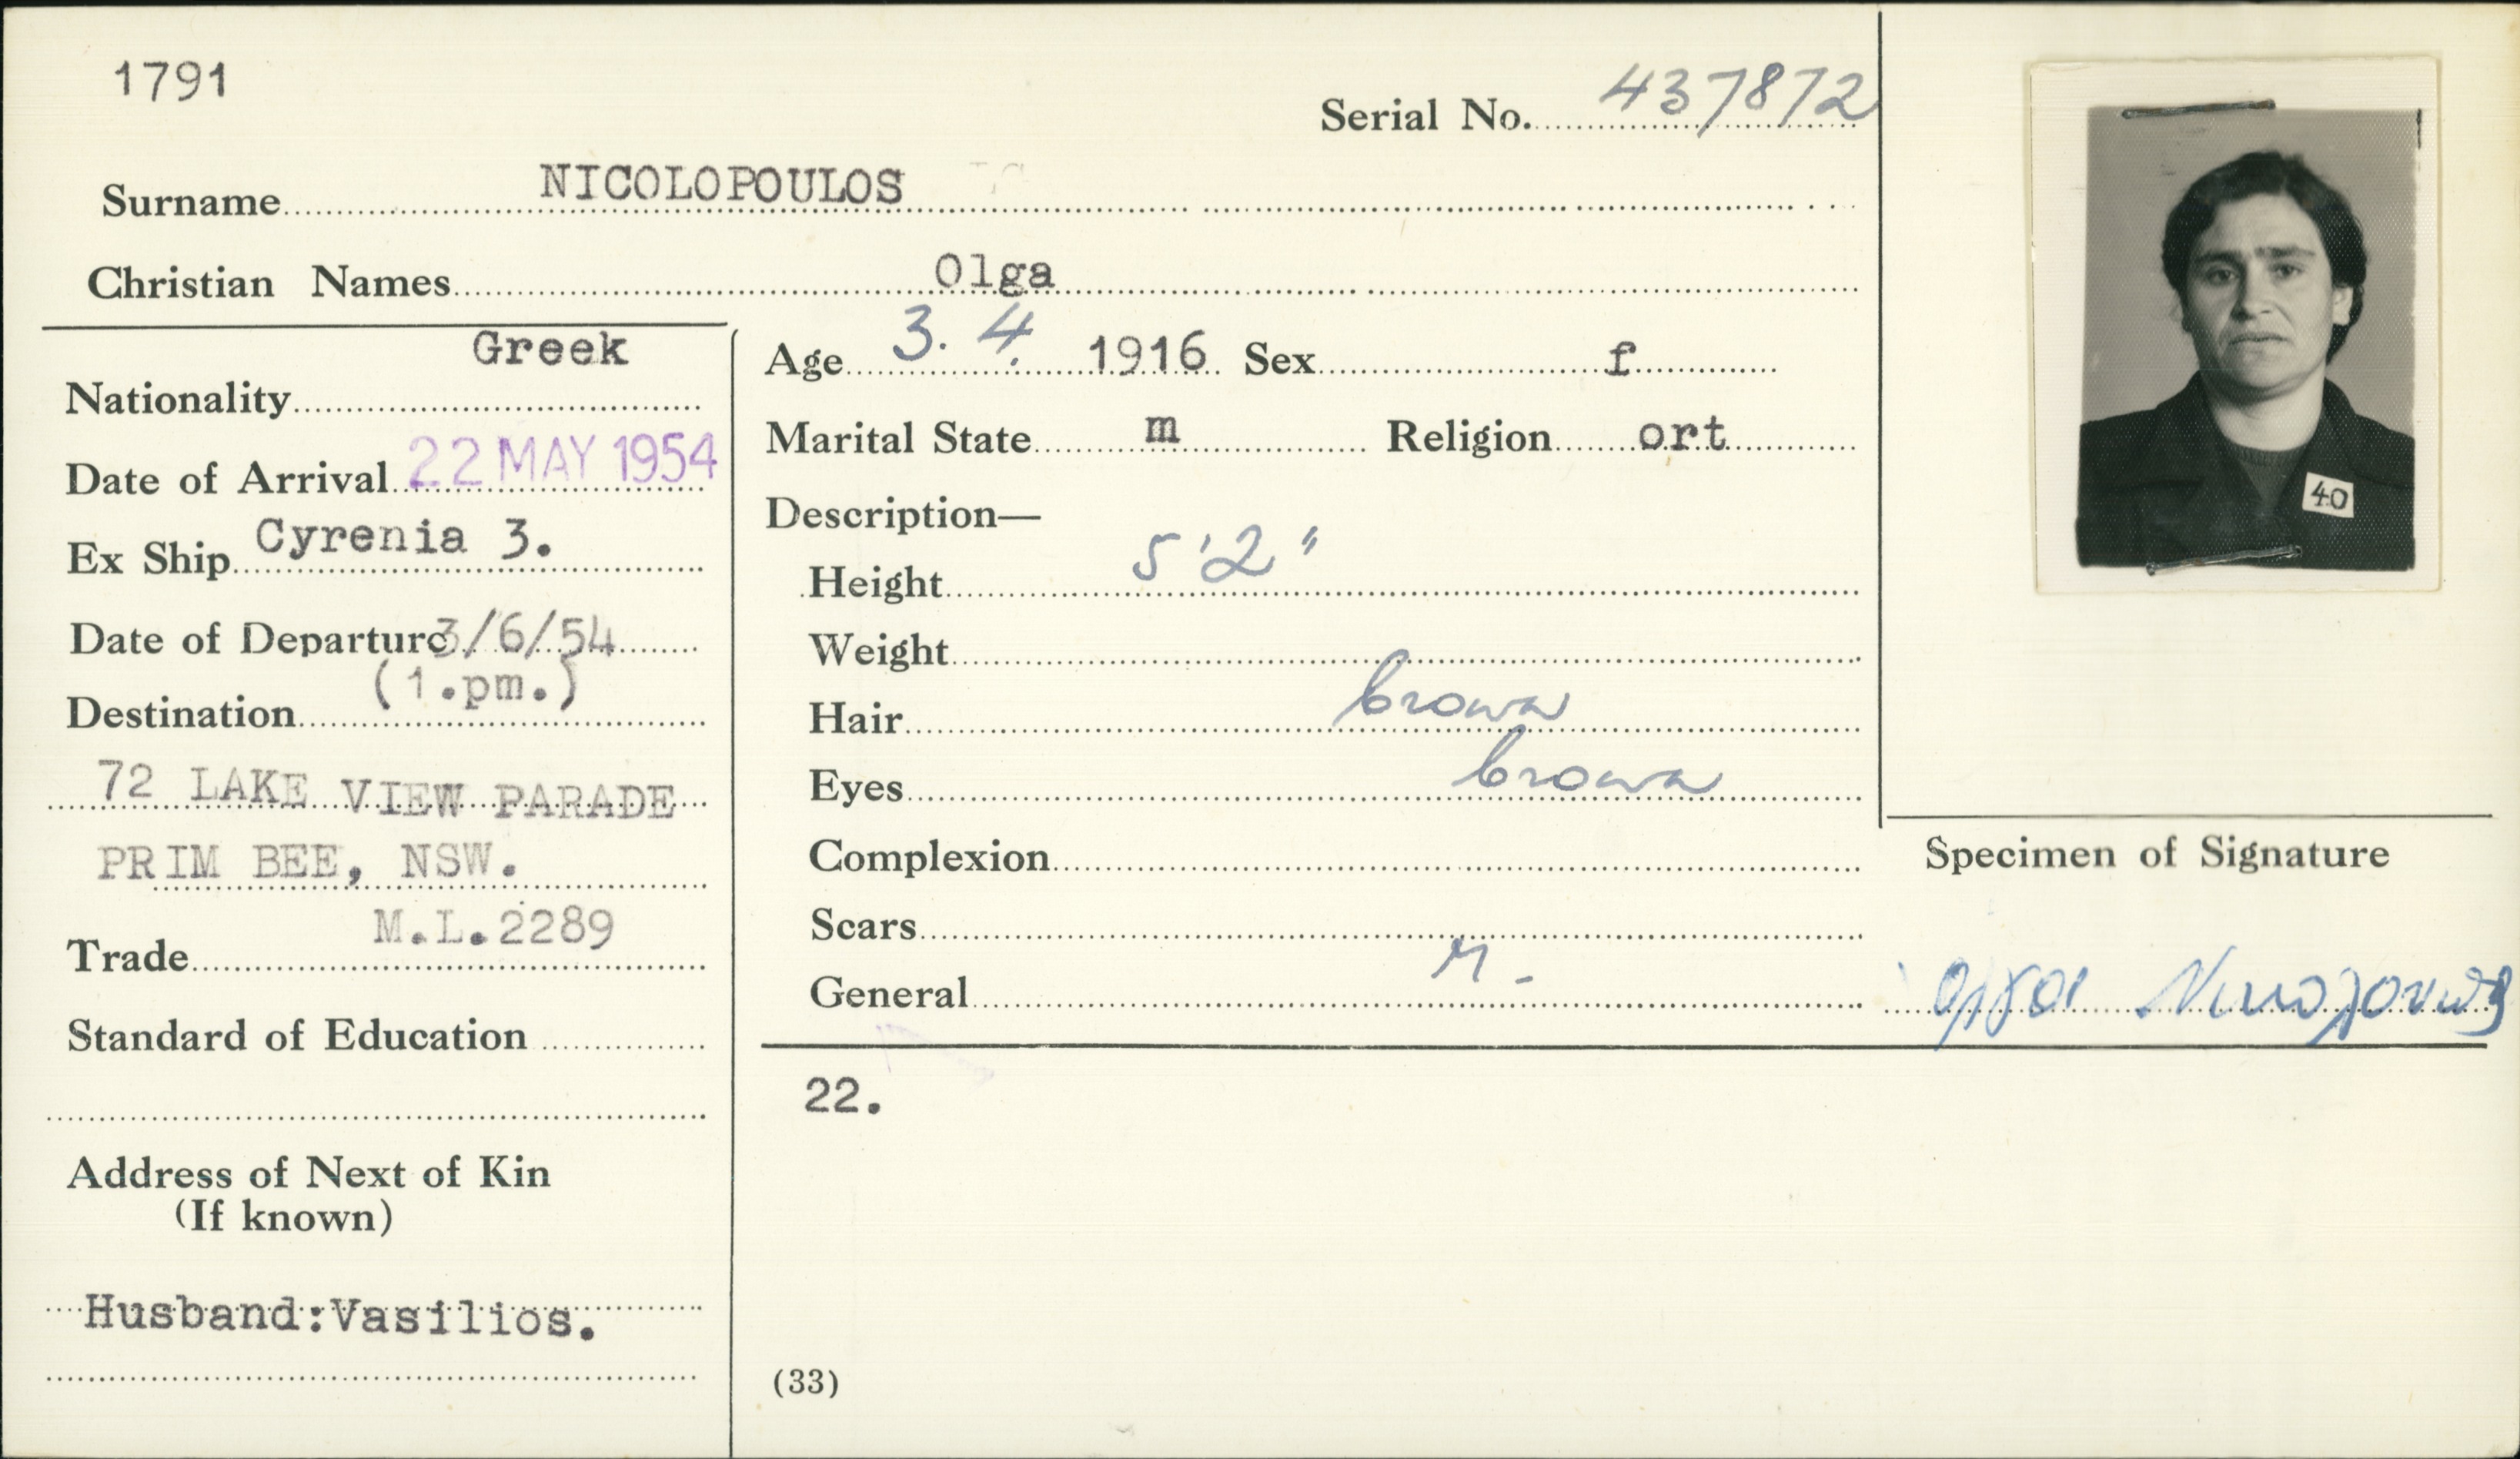 1791
Serial No. 437872
Surname NICOLOPOULOS
Christian Names Olga
Greek
Nationality
Date of Arrival 22 MAY 1954
Ex Ship Cyrenia 3.
Date of Departure 3/6/54
(1.pm.)
Destination
72 LAKE VIEW PARADE
PRIM BEE, NSW.
M.L.2289
Trade
Standard of Education
Address of Next of Kin
(If known)
Husband:Vasilios.
Age 3. 4. 1916 Sex f
Marital State m Religion ort
Description—
Height 5'2"
Weight
Hair brown
Eyes brown
Complexion
Scars
General
22.
(33)
40
Specimen of Signature